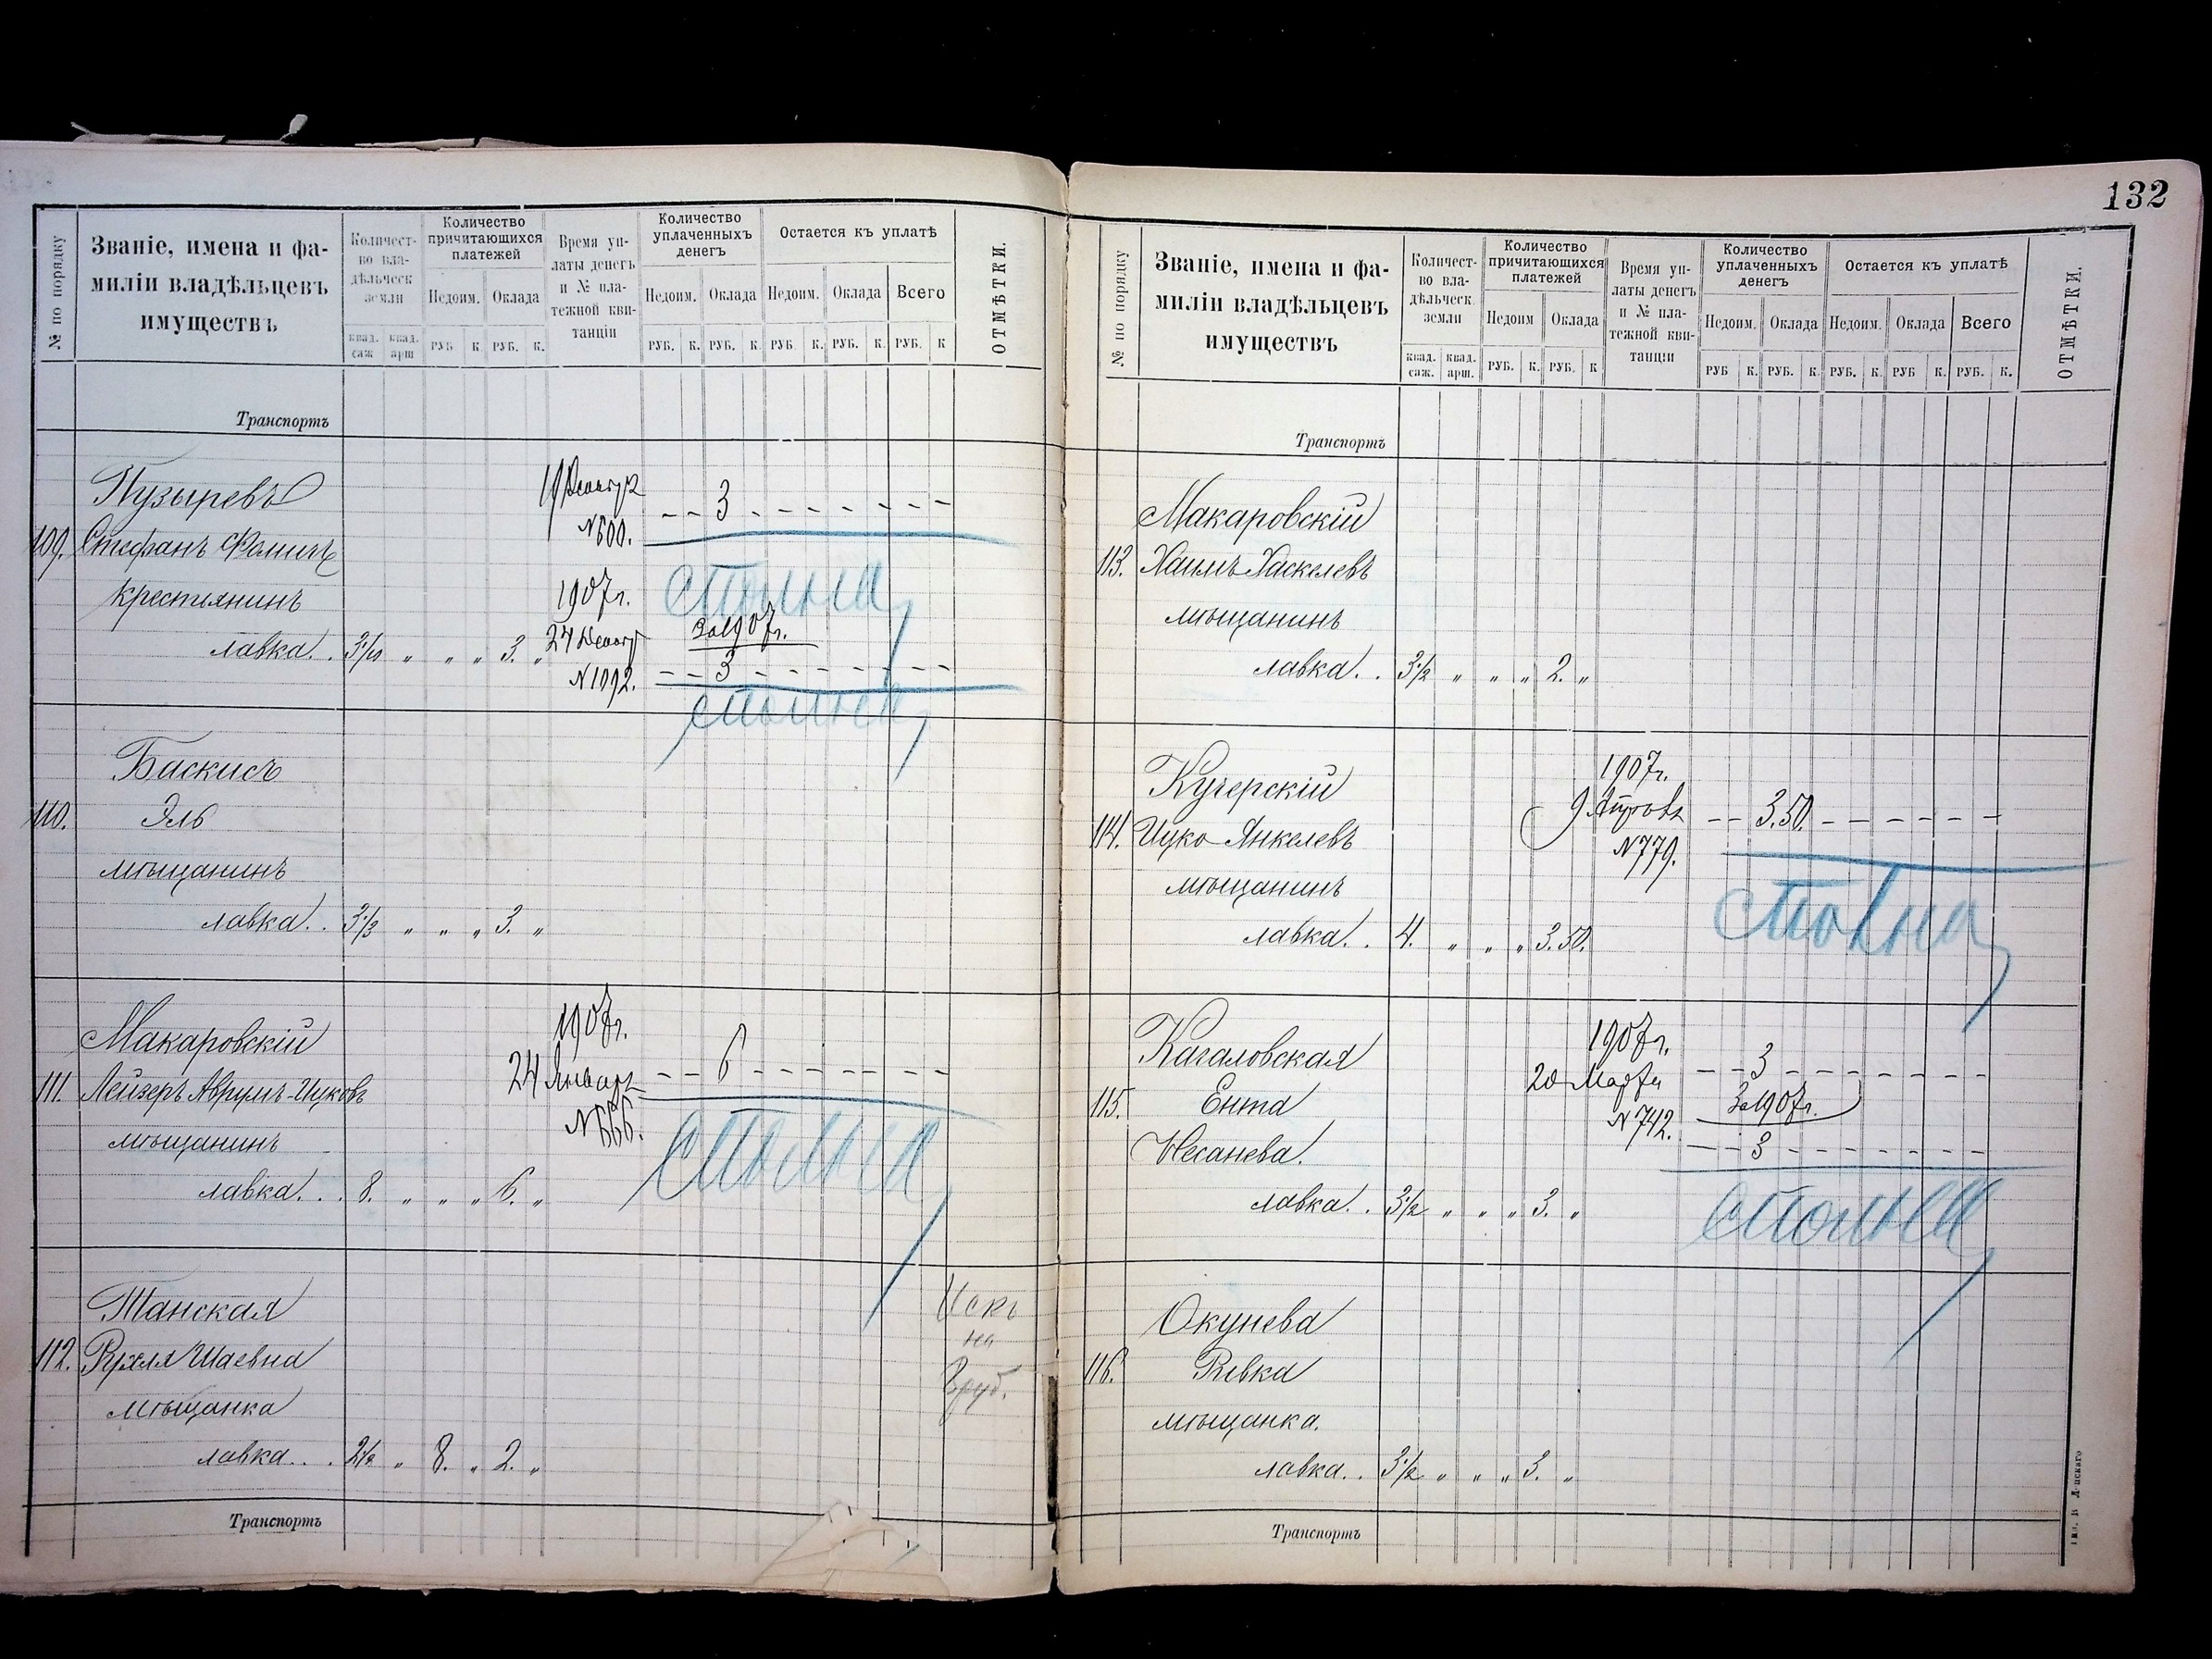 132
№ по порядку
Званіе, имена и фа-
миліи владѣльцевъ
имуществъ
Количест-
во вла-
дѣльческ
земли
квад. саж
квад. арш
Количество
причитающихся
платежей
Недоим. Оклада
РУБ К. РУБ. К.
Время уп-
латы денегъ
и № пла-
тежной кви-
танціи
Количество
уплаченныхъ
денегъ
Недоим. Оклада
РУБ. К. РУБ. К
Остается къ уплатѣ
Недоим. Оклада Всего
РУБ К. РУБ. К. РУБ. К
ОТМѢТКИ.
Транспортъ
Пузыревъ
109. Стефанъ Фомичъ
крестьянинъ
лавка. . 3 1/10 " " " 3. "
№ 600.
- - 3 - - - - - - -
1907г.
За 1907г.
№ 1092.
- - 3 - - - - - - -
Баскисъ
110. Эль
мѣщанинъ
лавка. . 3 1/3 " " " 3. "
Макаровскій
111. Лейзеръ Аврумъ-Ицковъ
мѣщанинъ
лавка. . . 8. " " " 6. "
1907г.
24 Январ
№ 666.
- - 6 - - - - - - -
Танская
112. Рухля Шаевна
мѣщанка
лавка. . . 2 1/2 " 8. " 2. "
Искъ
на
руб.
Транспортъ
№ по порядку
Званіе, имена и фа-
миліи владѣльцевъ
имуществъ
Количест-
во вла-
дѣльческ
земли
квад. саж.
квад. арш.
Количество
причитающихся
платежей
Недоим Оклада
РУБ. К. РУБ. К
Время уп-
латы денегъ
и № пла-
тежной кви-
танціи
Количество
уплаченныхъ
денегъ
Недоим. Оклада
РУБ К. РУБ. К.
Остается къ уплатѣ
Недоим. Оклада Всего
РУБ. К. РУБ К. РУБ. К.
ОТМѢТКИ.
Транспортъ
Макаровскій
113. Хаимъ Хаскелевъ
мѣщанинъ
лавка. . 3 1/2 " " " 2. "
Кучерскій
114. Ицко Янкелевъ
мѣщанинъ
лавка. . 4. " " " 3.50.
1907г.
№ 779.
- - 3.50. - - - - - -
Кагаловская
115. Ента
Несанева.
лавка. . 3 1/2 " " " 3. "
1907г.
20 Марта
№ 742.
- - 3 - - - - - - -
За 1907г.
- - 3 - - - - - - -
Окунева
116. Ривка
мѣщанка.
лавка. . 3 1/2 " " " 3. "
Транспортъ